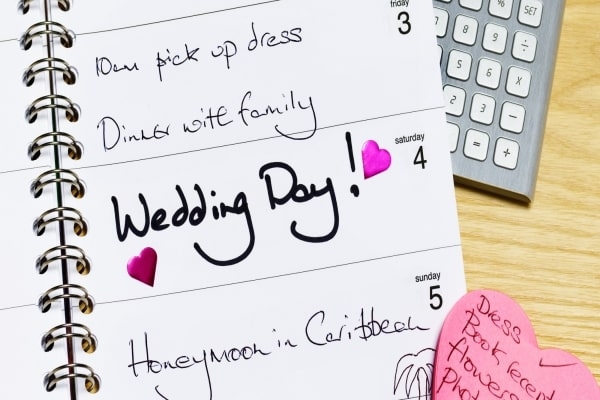 friday
3
10am pick up dress
Dinner with family
saturday
4
Wedding Day!
sunday
5
Honeymoon in Caribbean
SET
÷
9
8
6
5
×
3
2
−
·
=
+
Dress
Book
flowers